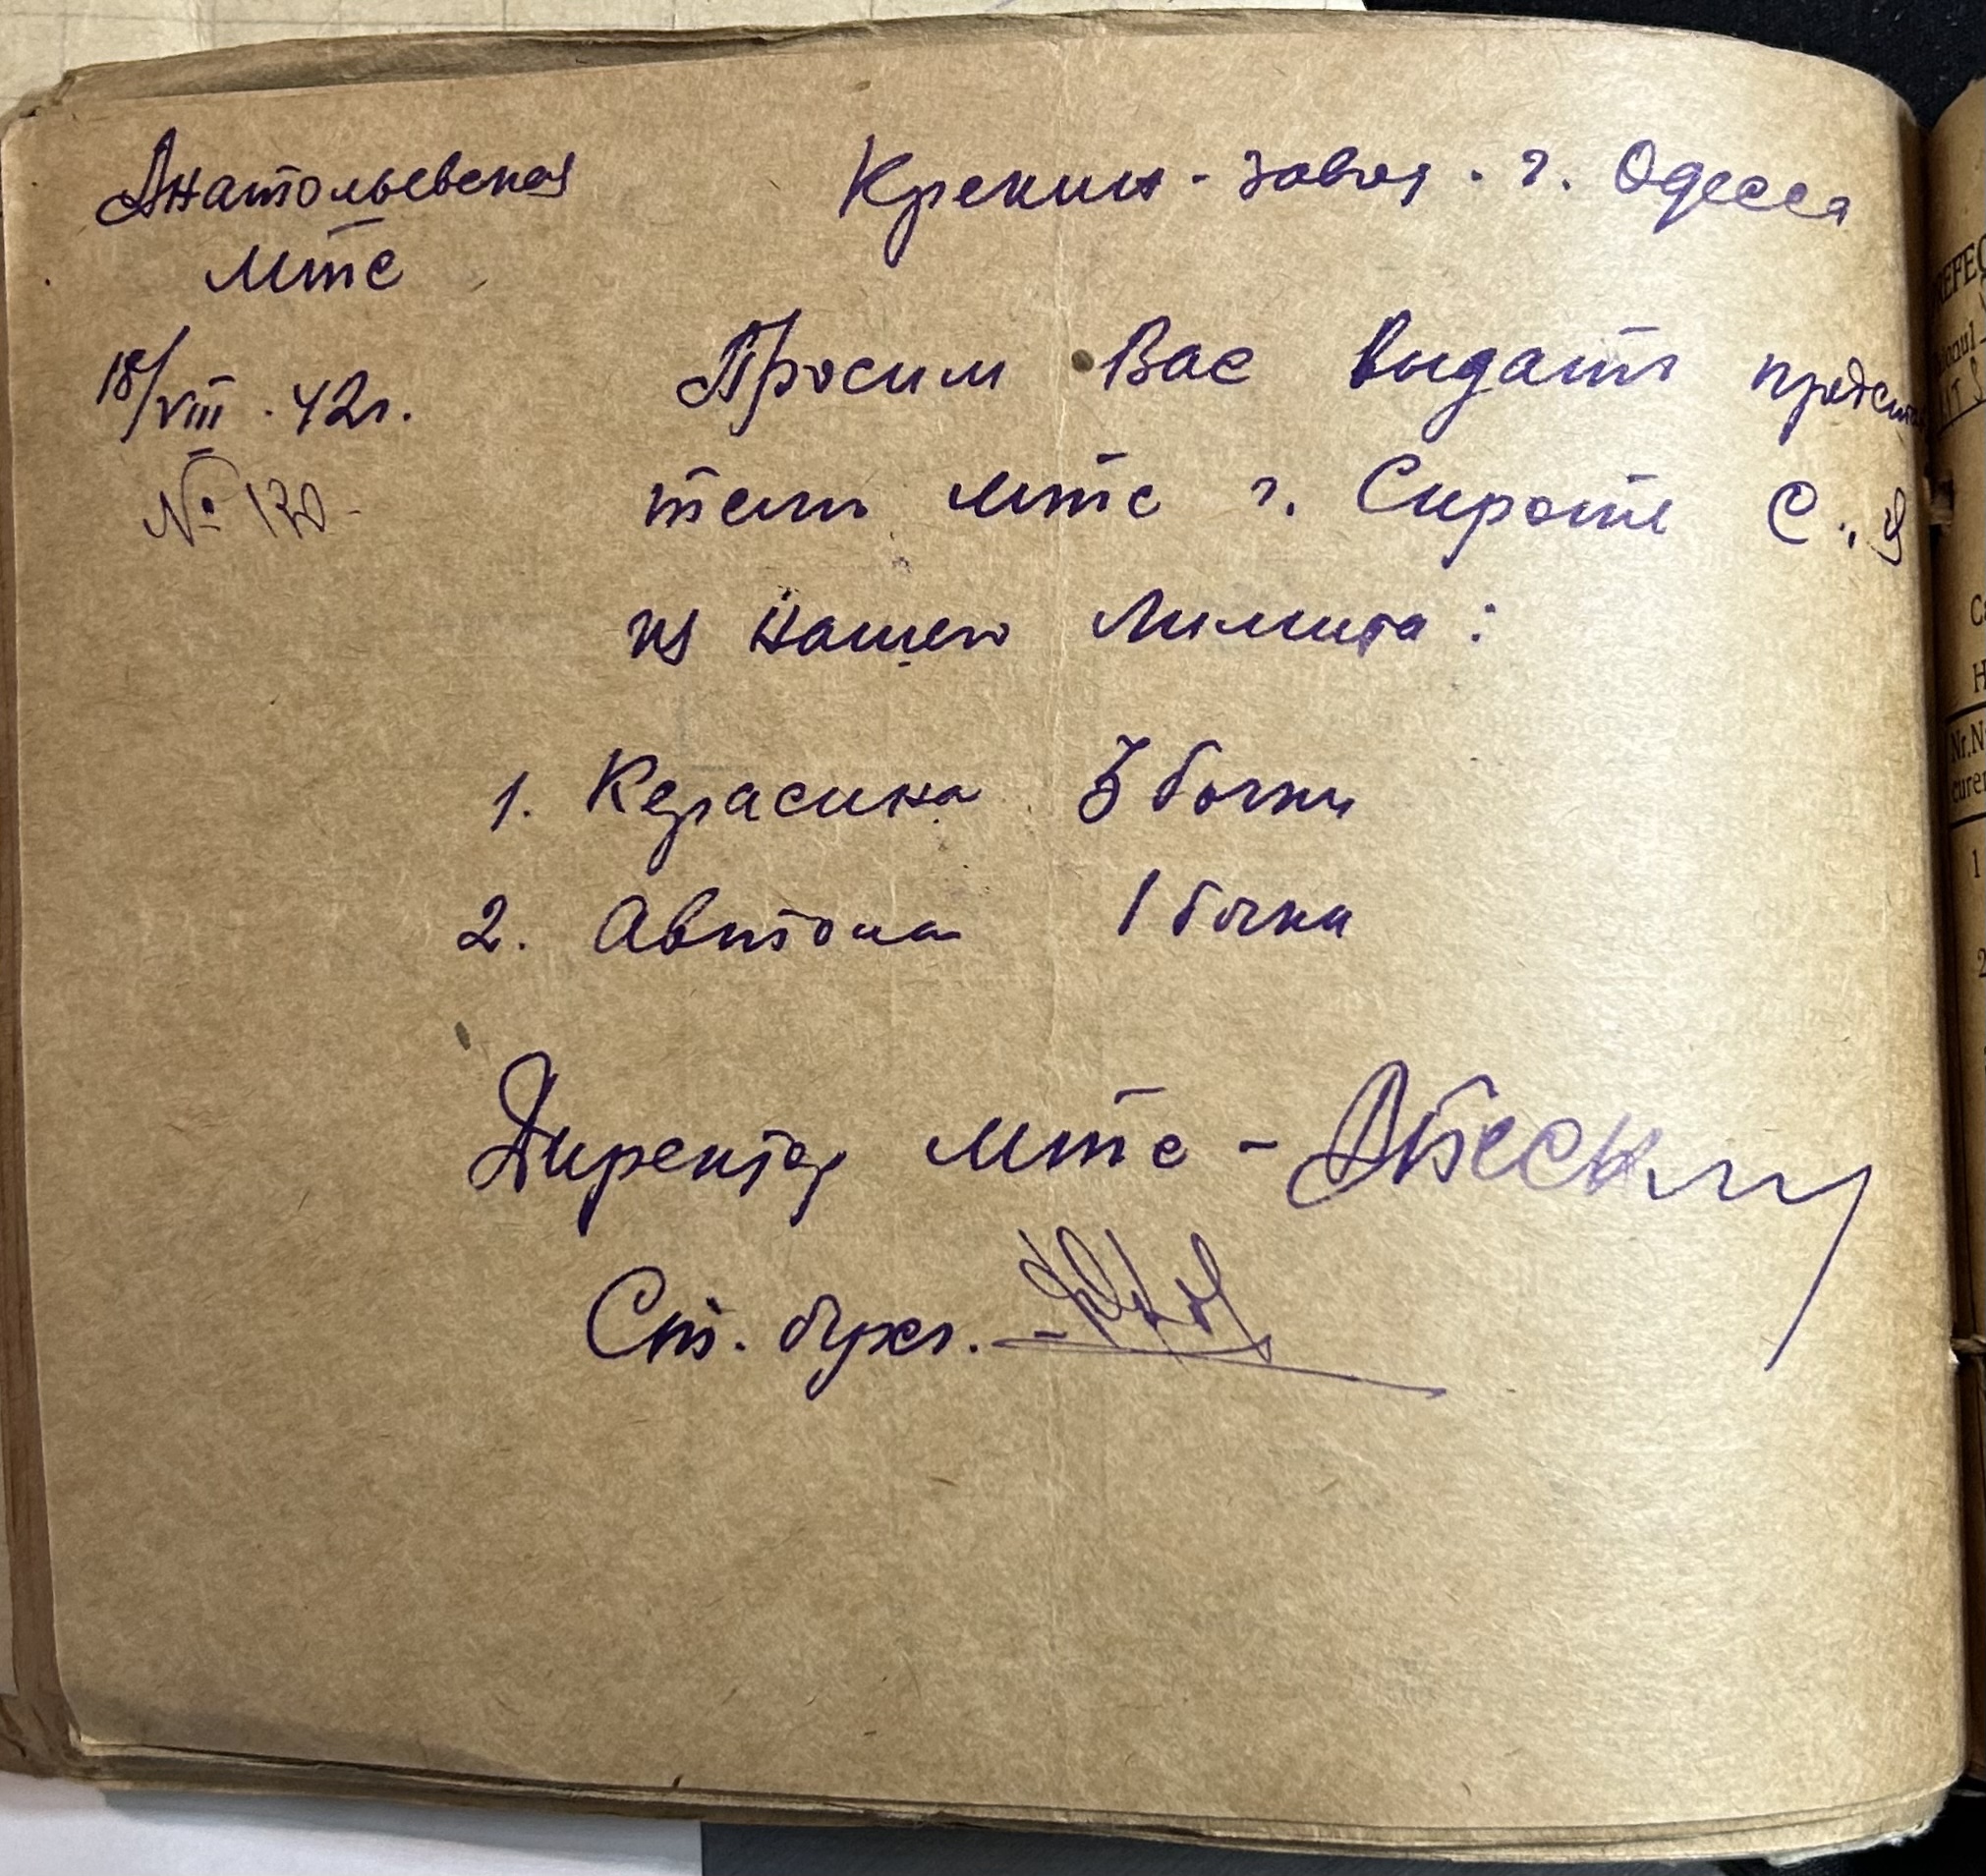 Анатольевская
МТС
18/VIII. 42г.
№ 130
Крекинг-завод. г. Одесса
Просим Вас выдать предста
телю МТС г. Сироте С.
из нашего лимита:
1. Керасина 3 бочки
2. Автола 1 бочка
Директор МТС -
Ст. бухг.
REFEC
Nr.
curen
1
2